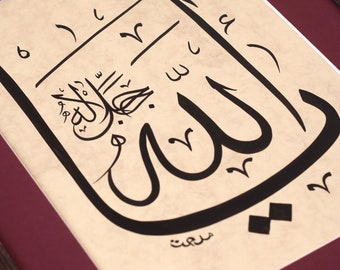 يا الله
جل جلاله
مدحت